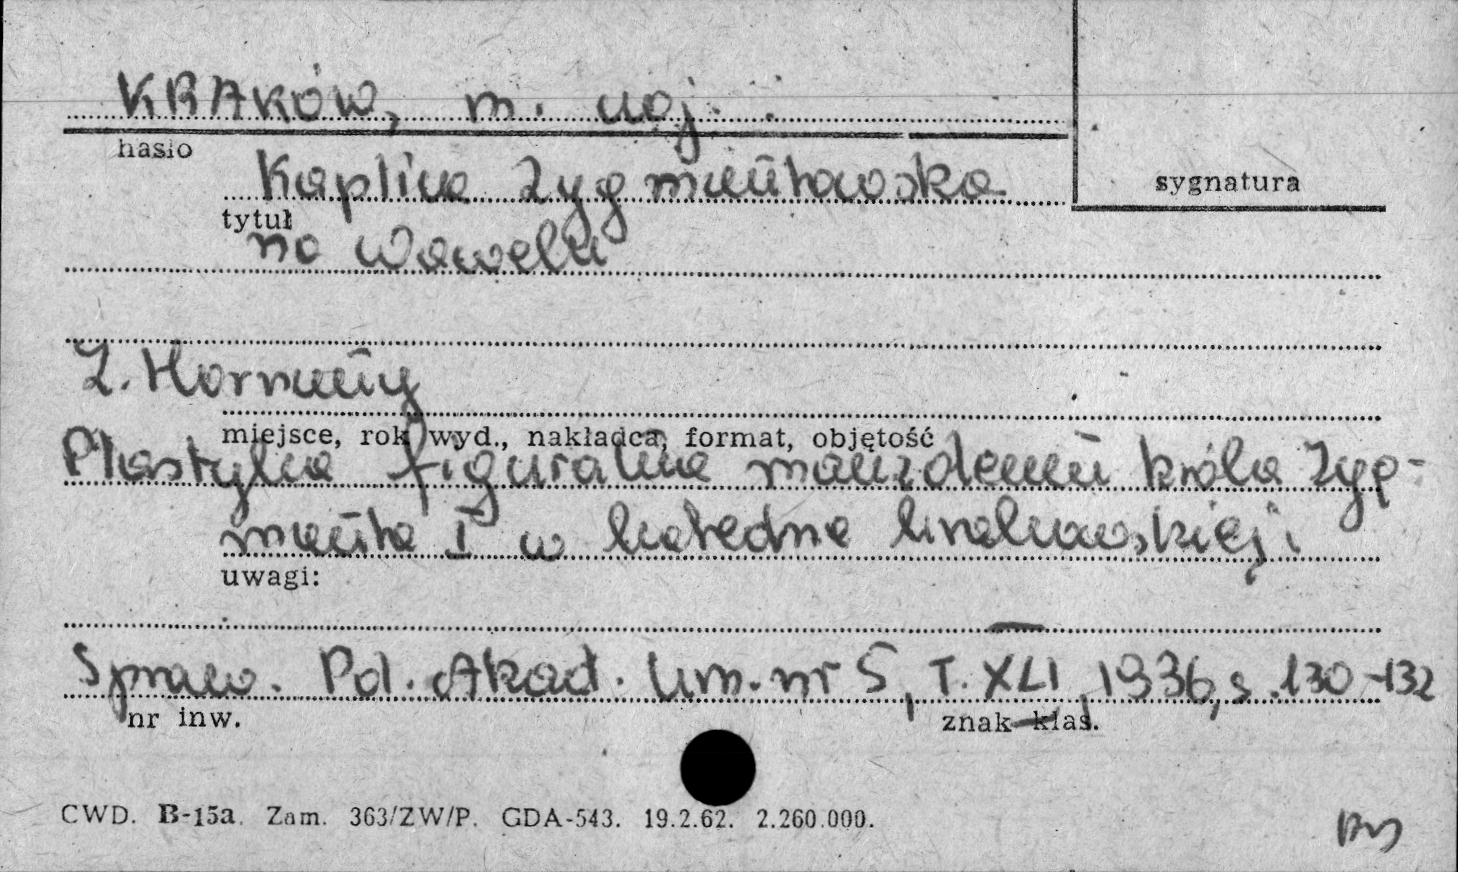 KRAKÓW, m. woj.
hasło
sygnatura
Kaplica Zygmuntowska
tytuł
na Wawelu
Z. Hornung
miejsce, rok wyd., nakładca, format, objętość
Plastyka figuralna mauzoleum króla Zyg-
munta I w katedrze krakowskiej;
uwagi:
Spraw. Pol. Akad. Um. nr 5, T. XLI, 1936, s. 130-132
nr inw.
znak klas.
CWD. B-15a. Zam. 363/ZW/P. GDA-543. 19.2.62. 2.260.000.